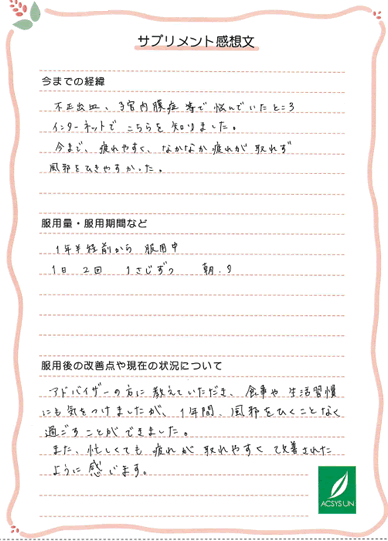 サプリメント感想文
今までの経緯
不正出血、子宮内膜症 等で 悩んでいたところ
インターネットで こちらを 知りました。
今まで、疲れやすく、なかなか疲れが 取れず
風邪をひきやすかった。
服用量・服用期間など
1年半程前から 服用中
1日 2回 1さじずつ 朝・夕
服用後の改善点や現在の状況について
アドバイザーの方に 教えていただき、食事や 生活習慣
にも気をつけましたが、1年間、風邪をひくことなく
過ごすことが できました。
また、忙しくても 疲れが 取れやすく 改善された
ように 感じます。
ACSYSUN